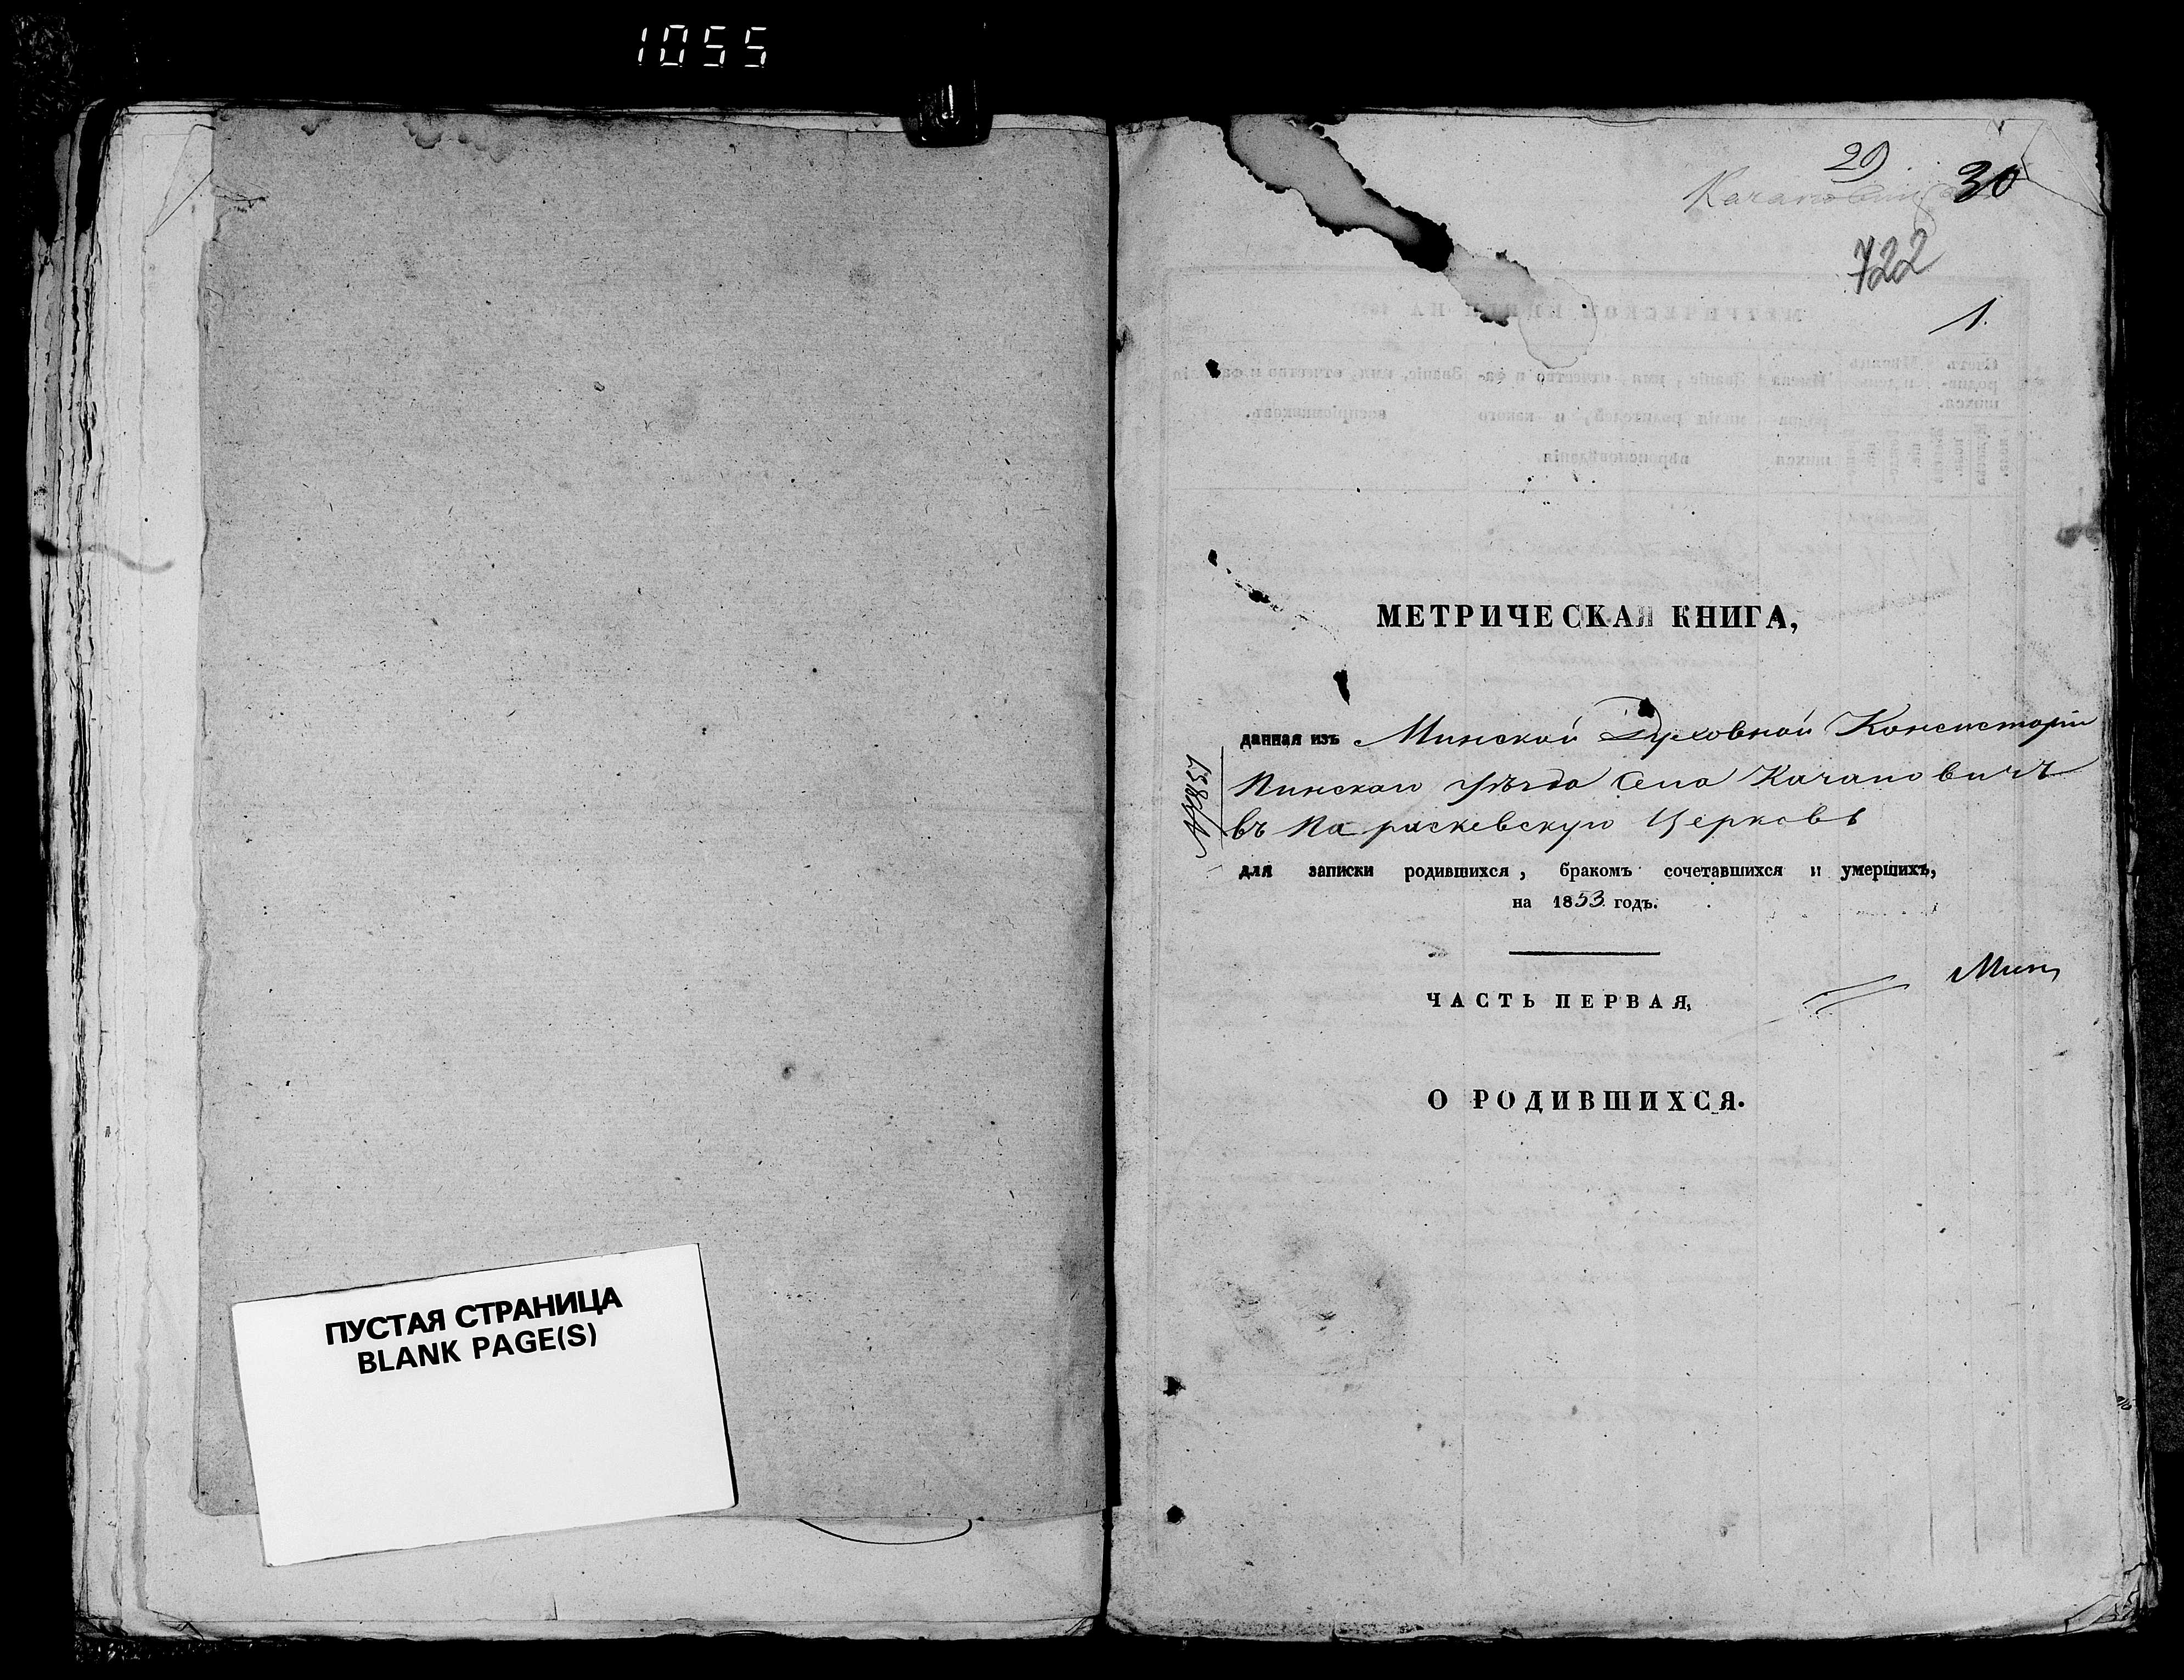 1055
ПУСТАЯ СТРАНИЦА
BLANK PAGE(S)
29
30
722
1.
МЕТРИЧЕСКАЯ КНИГА,
данная изъ Минской Духовной Консисторіи
Пинскаго уѣзда села Качановичъ
въ Параскевскую Церковь
для записки родившихся, бракомъ сочетавшихся и умершихъ,
на 1853 годъ.
ЧАСТЬ ПЕРВАЯ,
О РОДИВШИХСЯ.